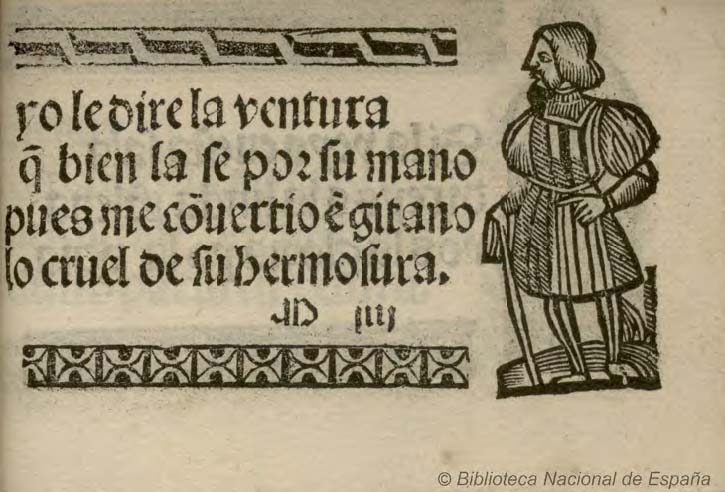 yo le dire la ventura
q̃ bien la se por su mano
pues me cõuertio ẽ gitano
lo cruel de su hermosura.
© Biblioteca Nacional de España